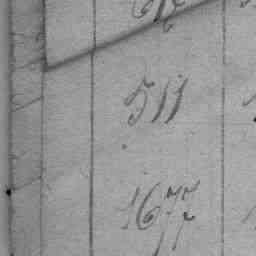 511
1677